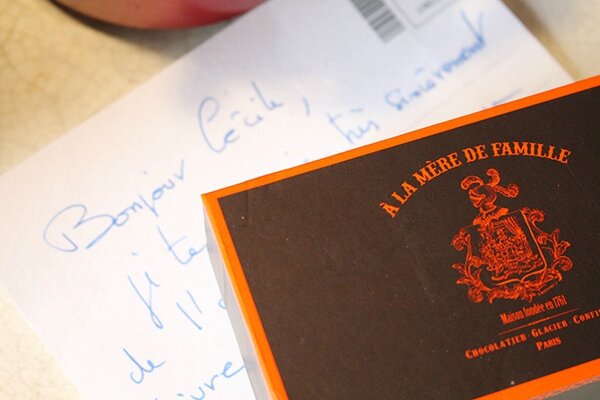 Bonjour Cécile,
je te très sincèrement
de
À LA MÈRE DE FAMILLE
Maison fondée en 1761
CHOCOLATIER · GLACIER · CONFIS
PARIS